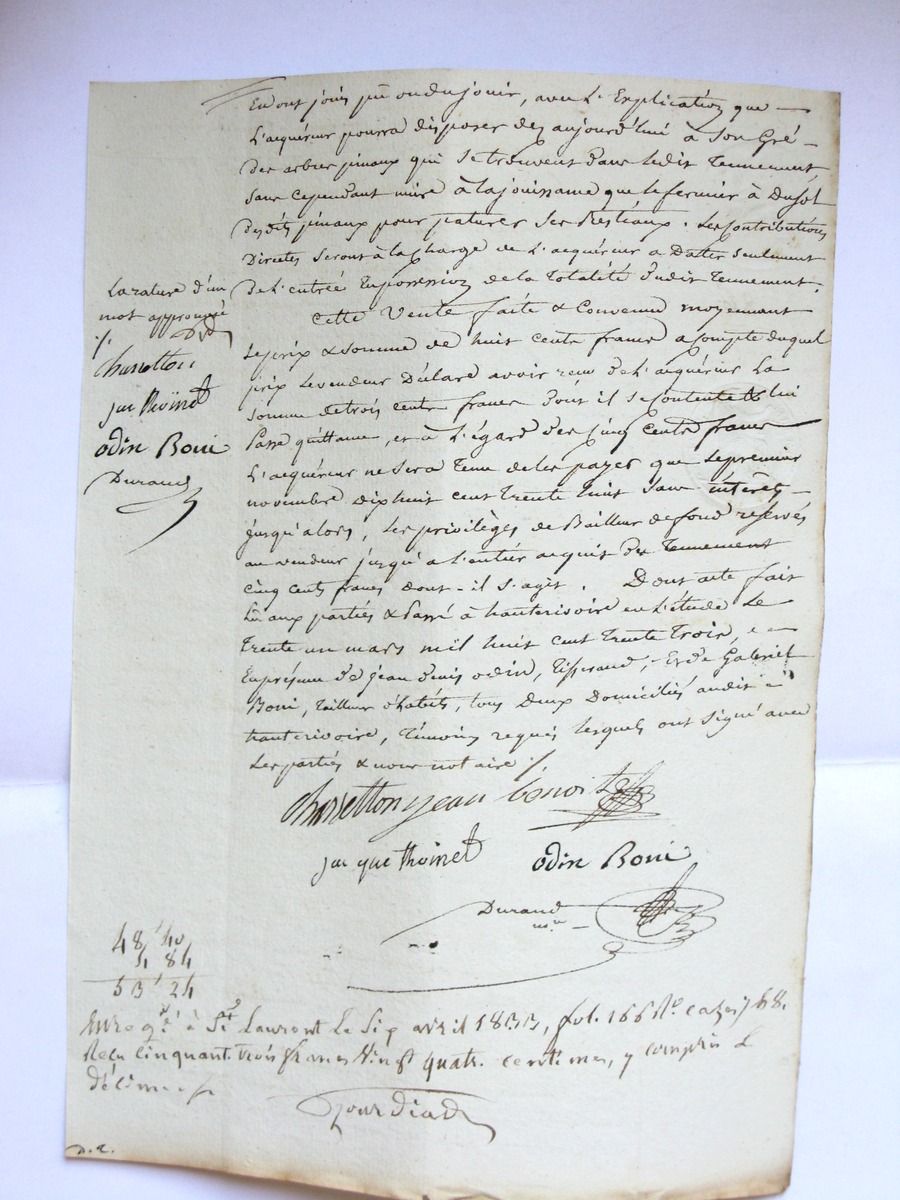 En ont joui pu ou du jouir, avec l'Explication que
L'acquéreur pourra disposer dez aujourd'hui à son Gré
Des arbres pinaux qui se trouvent dans ledit Tennement
sans cependant nuire à la jouissance que le fermier à Du sol
Desdits pinaux pour paturer ses Bestiaux. Les Contributions
Directes seront à la Charge de L'acquéreur a Dater seulement
De L'entrée En possession de la totalité dudit Tennement.
Cette Vente faite & Convenue moyennant
Le prix & somme de huit cents francs a compte duquel
prix Le vendeur Déclare avoir reçu de L'acquéreur La
somme de trois cents francs Dont il se contente & lui
Passe quittance, et à L'égard des Cinq cents francs
L'acquéreur ne sera Tenu de les payer que Le premier
novembre dix huit cent trente huit sans intérêts
jusqu'alors, Les privilèges de Bailleur de fond réservés
au vendeur jusqu'a l'entier acquit des Tennement
Cinq cents francs dont il s'agit. Dont acte fait
Lu aux parties & Passé à hauterivoire en L'étude Le
Trente un mars mil huit cent Trente Trois,
En présence De jean denis odin, Tisserand, Et de Gabriel
Boni, Tailleur d'habits, tous Deux Domiciliés audit
hauterivoire, Témoins requis lesquels ont signé avec
Les parties & nous notaire ./.
La rature d'un
mot approuvé
./.
Chassetton
jac thoinet
odin Boni
Durand
Chassetton jean benoit
jacque thoinet odin Boni
Durand
nre
48 40
4 84
53 24
Enregé à St Laurent Le Six avril 1833, fol. 166 Ro caze 7 & 8.
Reçu Cinquante trois francs Vingt quatre centimes, y compris le
décime
D. L.